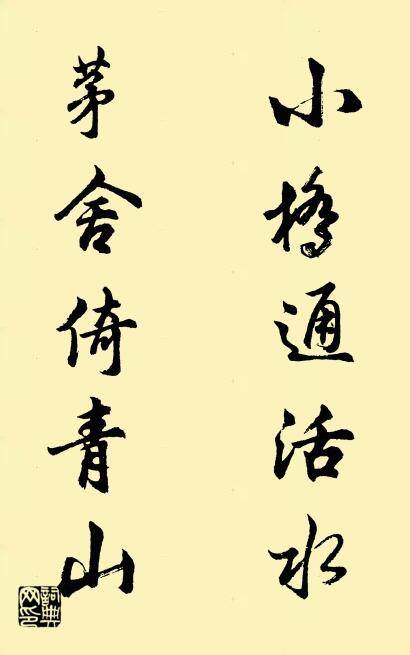 小橋通活水
茅舍倚青山
詞典網印